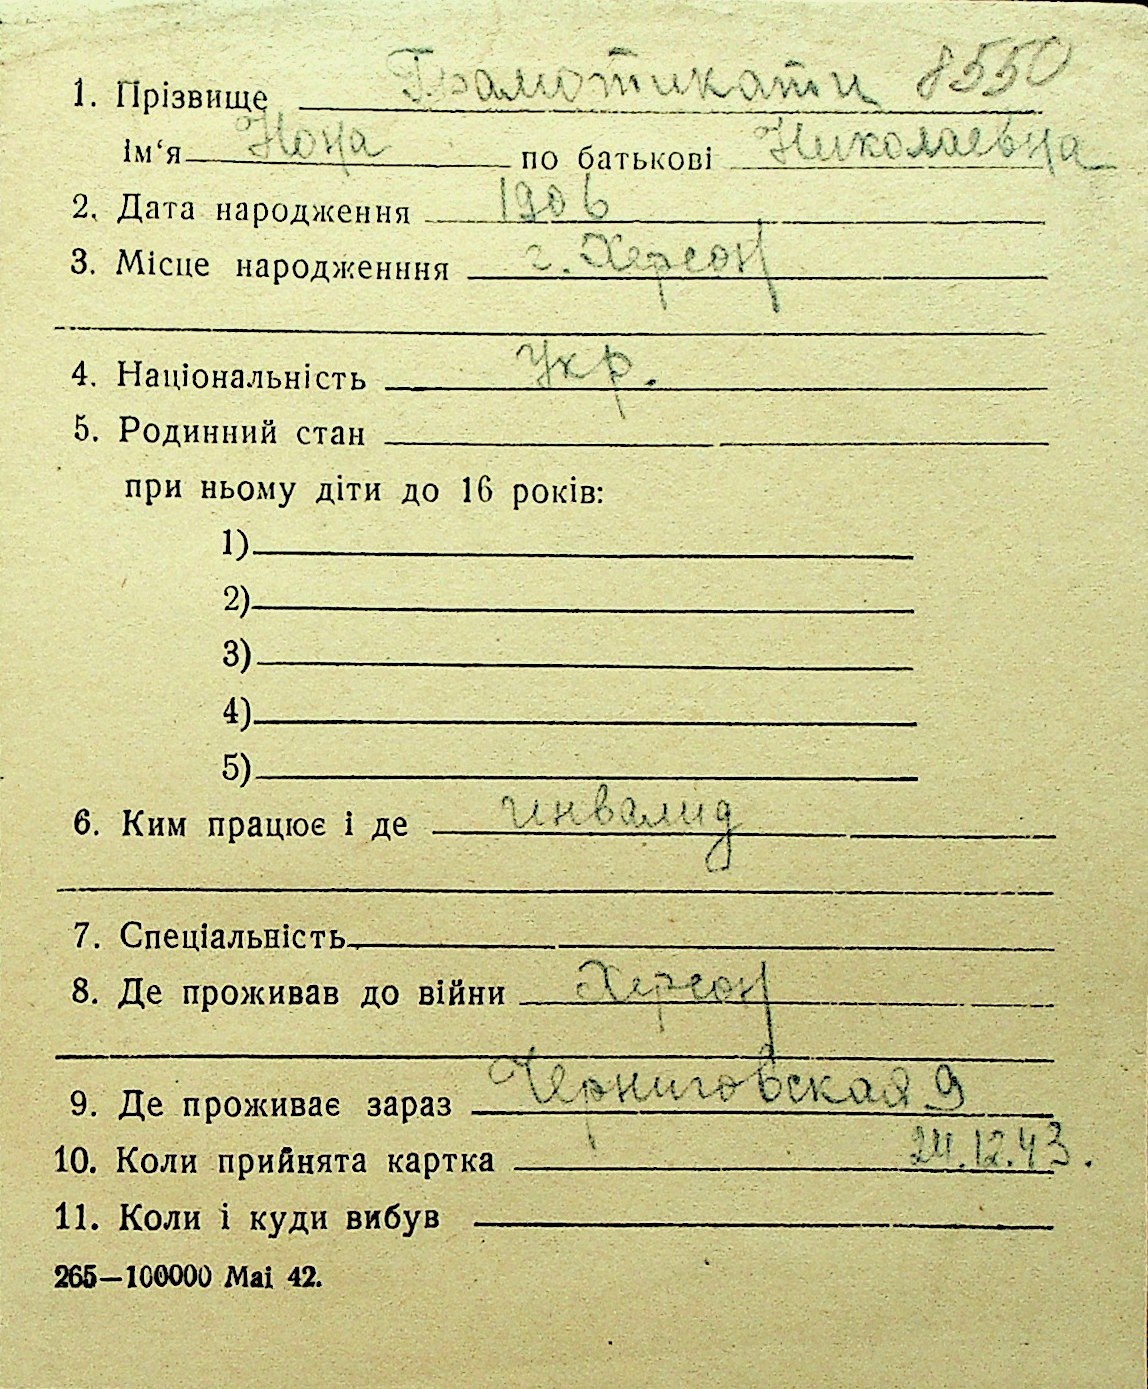 1. Прізвище Грамотикати 8550
Ім‘я Нона по батькові Николаевна
2. Дата народження 1906
3. Місце народженння г. Херсон
4. Національність Укр.
5. Родинний стан
при ньому діти до 16 років:
1)
2)
3)
4)
5)
6. Ким працює і де инвалид
7. Спеціальність
8. Де проживав до війни Херсон
9. Де проживає зараз Черниговская 9
10. Коли прийнята картка 24.12.43.
11. Коли і куди вибув
265—100000 Mai 42.